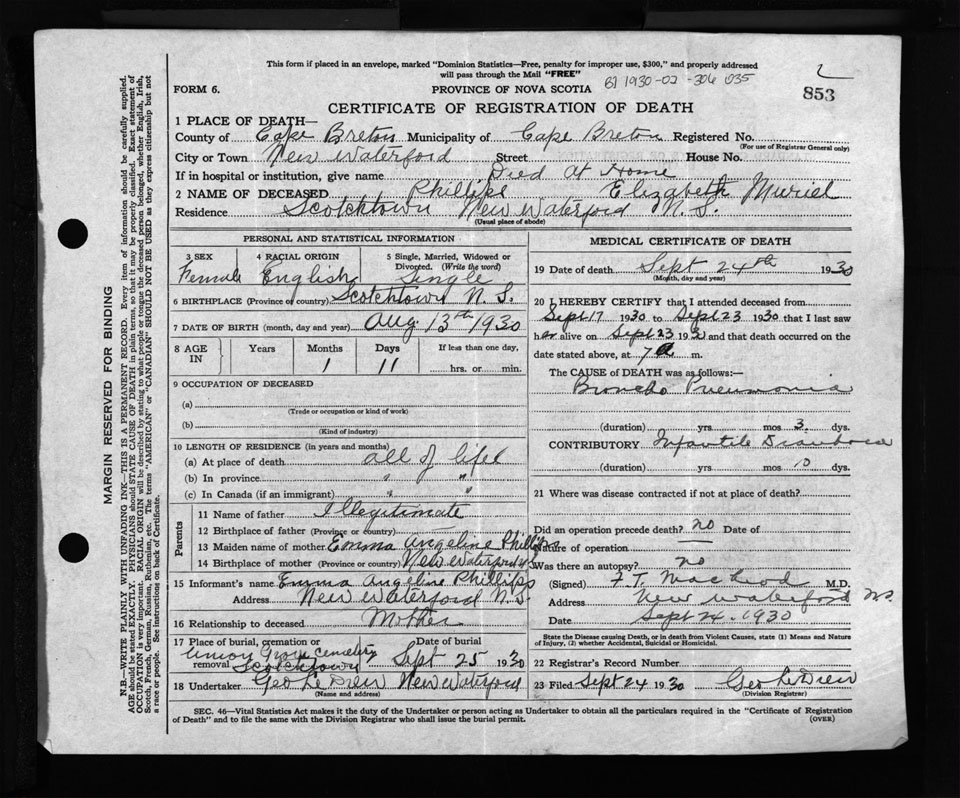 This form if placed in an envelope, marked "Dominion Statistics—Free, penalty for improper use, $300," and properly addressed
will pass through the Mail "FREE"
1930-02-306 035
2
FORM 6.
PROVINCE OF NOVA SCOTIA
853
CERTIFICATE OF REGISTRATION OF DEATH
1 PLACE OF DEATH—
County of Cape Breton Municipality of Cape Breton Registered No.
(For use of Registrar General only)
City or Town New Waterford Street House No.
If in hospital or institution, give name Died At Home
2 NAME OF DECEASED Phillips Elizabeth Muriel
Residence Scotchtown New Waterford N.S.
(Usual place of abode)
PERSONAL AND STATISTICAL INFORMATION
3 SEX 4 RACIAL ORIGIN 5 Single, Married, Widowed or Divorced. (Write the word)
Female English Single
6 BIRTHPLACE (Province or country) Scotchtown N.S.
7 DATE OF BIRTH (month, day and year) Aug 13th 1930
8 AGE IN Years Months Days If less than one day,
1 11 hrs. or min.
9 OCCUPATION OF DECEASED
(a)
(Trade or occupation or kind of work)
(b)
(Kind of industry)
10 LENGTH OF RESIDENCE (in years and months)
(a) At place of death all of life
(b) In province " "
(c) In Canada (if an immigrant) " "
Parents
11 Name of father Illegitimate
12 Birthplace of father (Province or country)
13 Maiden name of mother Emma Angeline Phillips
14 Birthplace of mother (Province or country) New Waterford N.S.
15 Informant's name Emma Angeline Phillips
Address New Waterford N.S.
16 Relationship to deceased Mother
17 Place of burial, cremation or removal Date of burial
Union Grove Cemetery Scotchtown Sept 25 1930
18 Undertaker Geo LeDrew New Waterford
(Name and address)
MEDICAL CERTIFICATE OF DEATH
19 Date of death Sept 24th 1930
(Month, day and year)
20 I HEREBY CERTIFY that I attended deceased from
Sept 17 1930 to Sept 23 1930 that I last saw
her alive on Sept 23 193 and that death occurred on the
date stated above, at 7 a m.
The CAUSE of DEATH was as follows:—
Broncho Pneumonia
(duration) yrs mos 3 dys.
CONTRIBUTORY Infantile Diarrhoea
(duration) yrs mos 10 dys.
21 Where was disease contracted if not at place of death?
Did an operation precede death? no Date of
Nature of operation —
Was there an autopsy? no
(Signed) F. T. MacLeod M.D.
Address New Waterford N.S.
Date Sept 24. 1930
State the Disease causing Death, or in death from Violent Causes, state (1) Means and Nature of Injury, (2) whether Accidental, Suicidal or Homicidal.
22 Registrar's Record Number
23 Filed Sept 24 1930 Geo LeDrew
(Division Registrar)
SEC. 46—Vital Statistics Act makes it the duty of the Undertaker or person acting as Undertaker to obtain all the particulars required in the "Certificate of Registration
of Death" and to file the same with the Division Registrar who shall issue the burial permit.
(OVER)
MARGIN RESERVED FOR BINDING
N.B.—WRITE PLAINLY WITH UNFADING INK—THIS IS A PERMANENT RECORD. Every item of information should be carefully supplied.
AGE should be stated EXACTLY. PHYSICIANS should STATE CAUSE OF DEATH in plain terms, so that it may be properly classified. Exact statement of
OCCUPATION is very important. RACIAL ORIGIN will be described by stating to what people or race the deceased person belonged, whether English, Irish,
Scotch, French, German, Russian, Ruthenian, etc. The terms "AMERICAN" or "CANADIAN" SHOULD NOT BE USED as they express citizenship but not
a race or people. See instructions on back of Certificate.